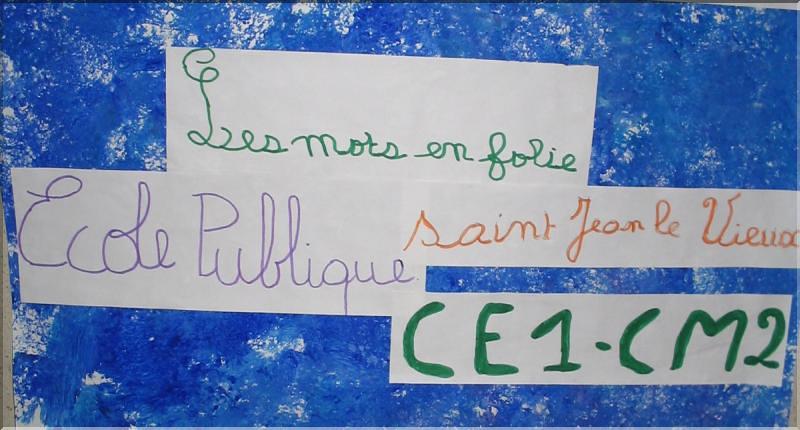 Les mots en folie
Ecole Publique
saint Jean le Vieux
CE1-CM2